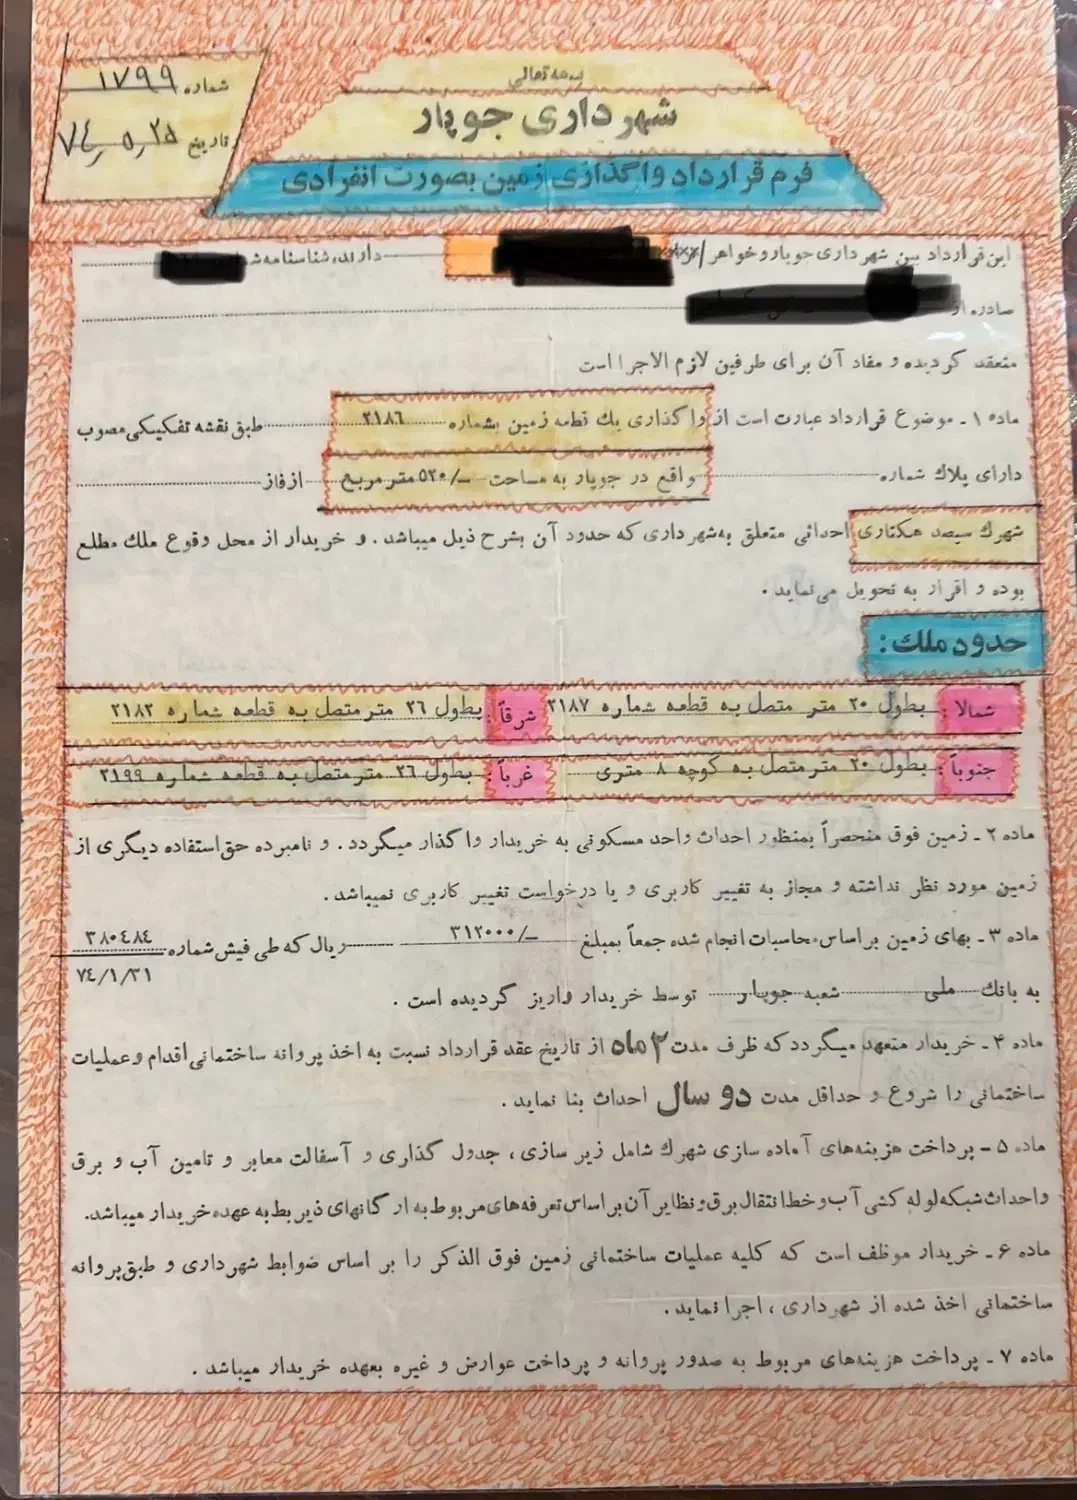 بسمه تعالی
شماره ۱۷۹۹
شهرداری جوپار
تاریخ ۷۴ر۵ر۲۵
فرم قرارداد واگذاری زمین بصورت انفرادی
این قرارداد بین شهرداری جوپار و خواهر / دارنده شناسنامه
صادره از
منعقد گردیده و مفاد آن برای طرفین لازم الاجرا است
ماده ۱ـ موضوع قرارداد عبارت است از واگذاری یك قطعه زمین بشماره ۲۱۸۶ طبق نقشه تفکیکی مصوب
دارای پلاك شماره واقع در جوپار به مساحت ـ/۵۲۰ متر مربع از فاز
شهرك سیصد هکتاری احداثی متعلق به شهرداری که حدود آن بشرح ذیل میباشد. و خریدار از محل وقوع ملك مطلع
بوده و اقرار به تحویل می‌نماید.
حدود ملك:
شمالا: بطول ۲۰ متر متصل به قطعه شماره ۲۱۸۷ شرقاً: بطول ۲۶ متر متصل به قطعه شماره ۲۱۸۲
جنوباً: بطول ۲۰ متر متصل به کوچه ۸ متری غرباً: بطول ۲۶ متر متصل به قطعه شماره ۲۱۹۹
ماده ۲ـ زمین فوق منحصراً بمنظور احداث واحد مسکونی به خریدار واگذار میگردد. و نامبرده حق استفاده دیگری از
زمین مورد نظر نداشته و مجاز به تغییر کاربری و یا درخواست تغییر کاربری نمیباشد.
ماده ۳ـ بهای زمین براساس محاسبات انجام شده جمعاً بمبلغ ـ/۳۱۲۰۰۰ ریال که طی فیش شماره ۳۸۰۴۸۴
۷۴/۱/۳۱
به بانك ملی شعبه جوپار توسط خریدار واریز گردیده است.
ماده ۴ـ خریدار متعهد میگردد که ظرف مدت ۲ ماه از تاریخ عقد قرارداد نسبت به اخذ پروانه ساختمانی اقدام و عملیات
ساختمانی را شروع و حداقل مدت دو سال احداث بنا نماید.
ماده ۵ـ پرداخت هزینه‌های آماده سازی شهرك شامل زیر سازی، جدول گذاری و آسفالت معابر و تامین آب و برق
و احداث شبکه لوله کشی آب و خط انتقال برق و نظایر آن براساس تعرفه‌های مربوط به ارگانهای ذیربط به عهده خریدار میباشد.
ماده ۶ـ خریدار موظف است که کلیه عملیات ساختمانی زمین فوق الذکر را بر اساس ضوابط شهرداری و طبق پروانه
ساختمانی اخذ شده از شهرداری، اجرا نماید.
ماده ۷ـ پرداخت هزینه‌های مربوط به صدور پروانه و پرداخت عوارض و غیره بعهده خریدار میباشد.